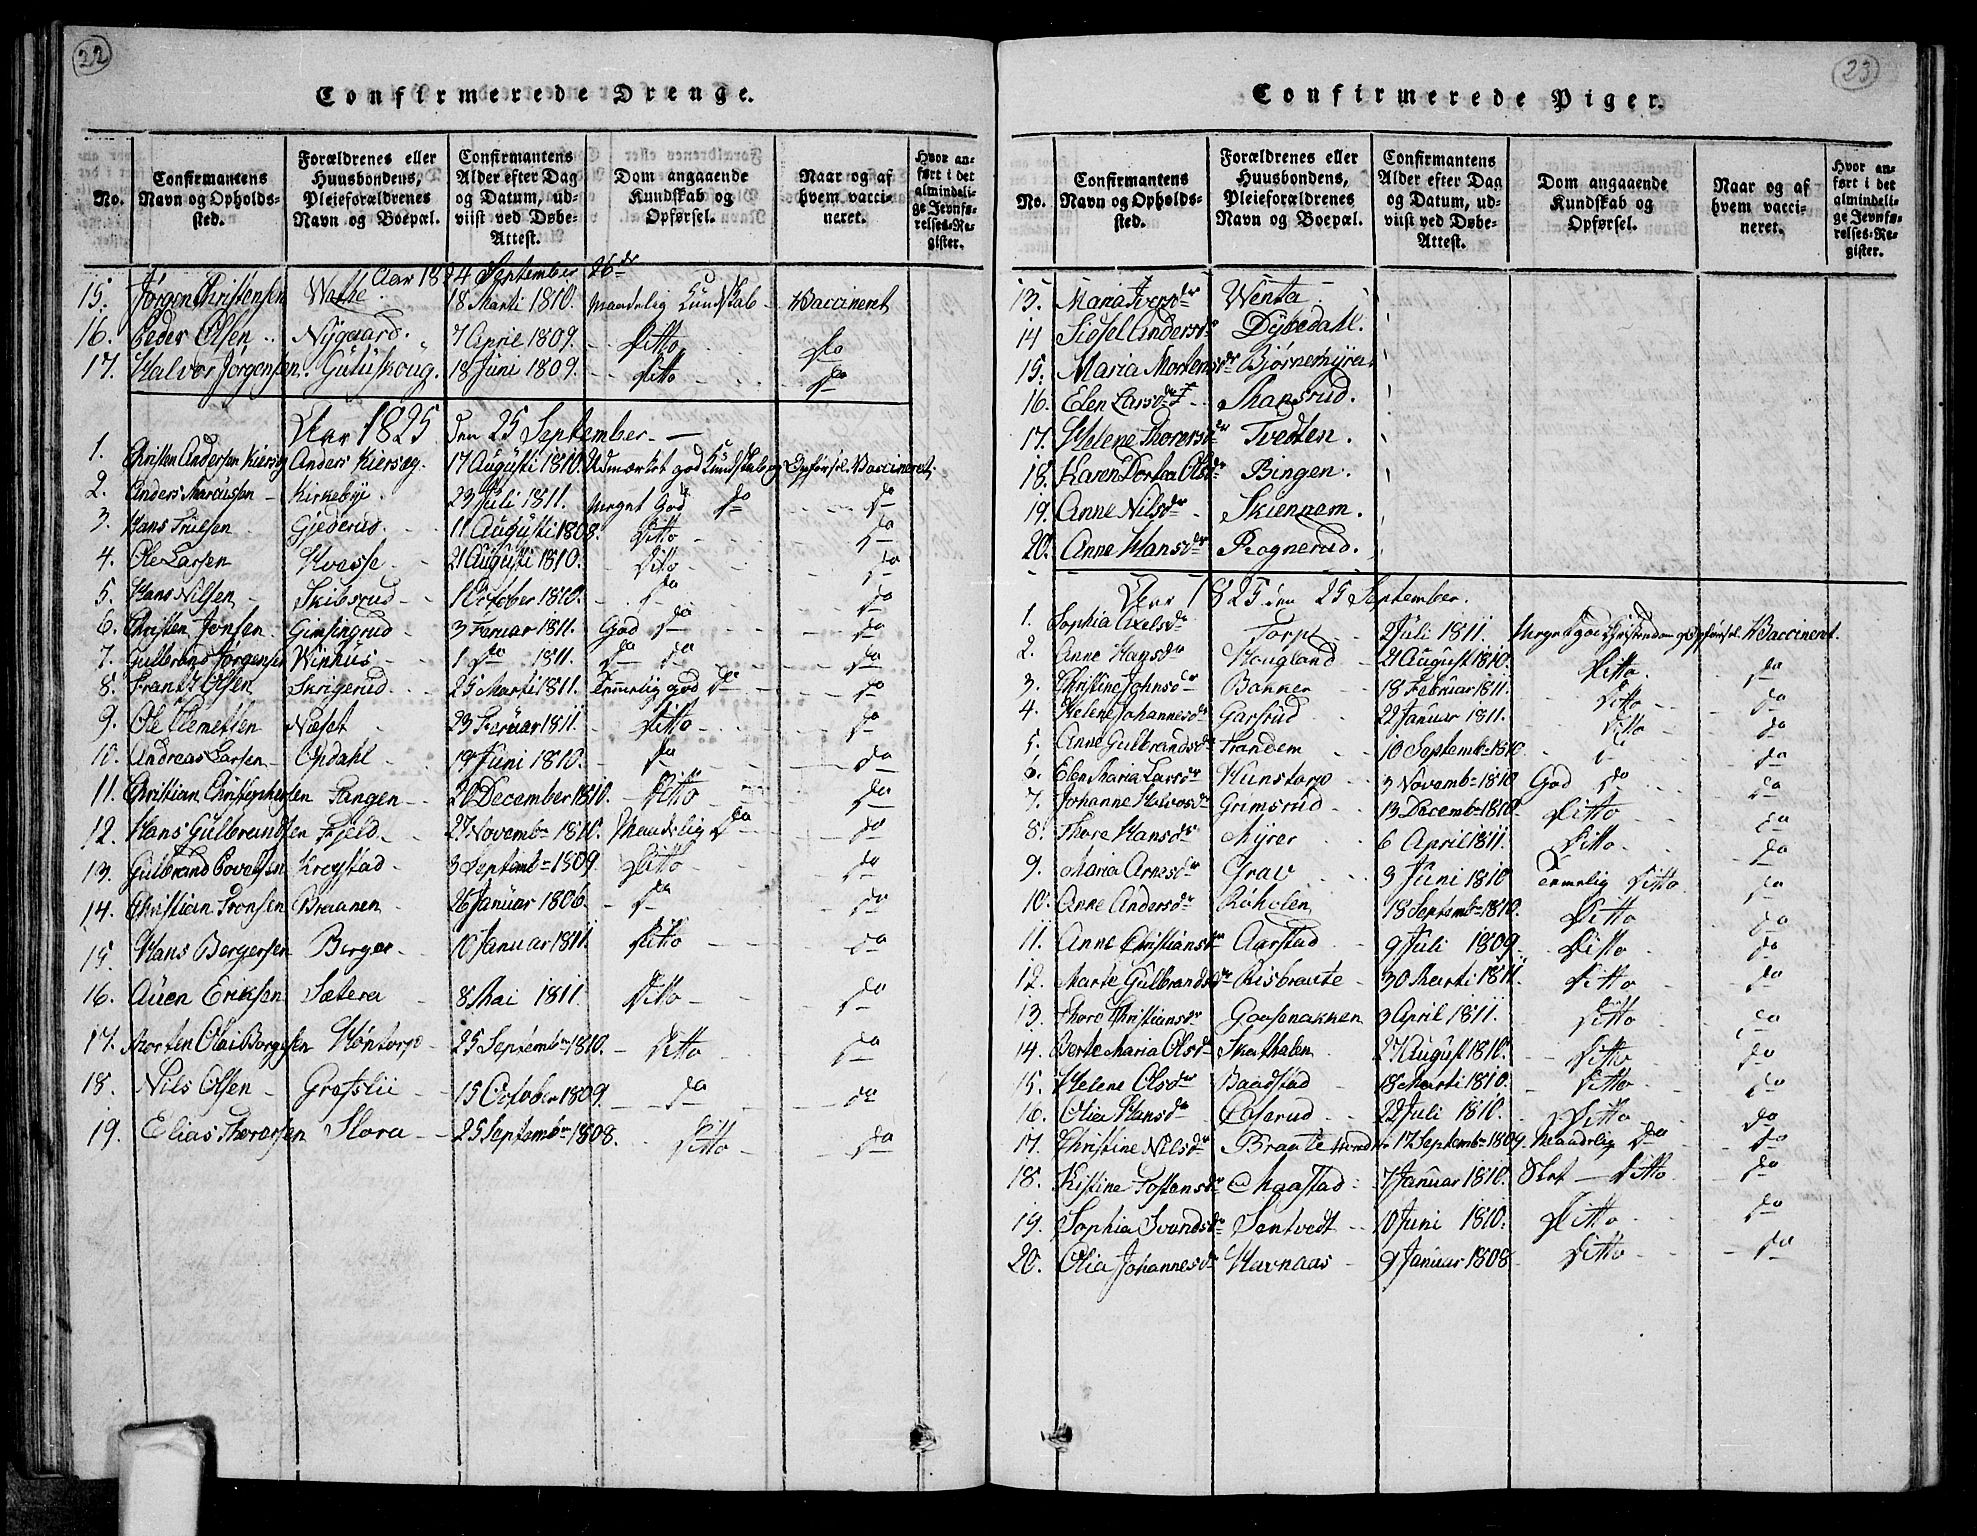 22
Confirmerede Drenge.
No.
Confirmantens Navn og Opholdssted.
Forældrenes eller Huusbondens, Pleieforældrenes Navn og Boepæl.
Confirmantens Alder efter Dag og Datum, udviist ved Døbe-Attest.
Dom angaaende Kundskab og Opførsel.
Naar og af hvem vaccineret.
Hvor anført i det almindelige Jevnførelses-Register.
Aar 1824 September 26de
15. Jørgen Christensen Watne 18 Marti 1810. Maadelig Kundskab - Waccineret
16. Peder Olsen Nygaard. 7 April 1809. Ditto do
17. Halvor Jørgensen. Guluskoug. 18 Juni 1809. Ditto do
Aar 1825 den 25 September.
1. Christen Andersen Kiersøg Anders Kiersøg. 17 Augusti 1810. Udmærket god Kundskab og Opførsel. Waccineret.
2. Anders Marcussen Kirkebye. 23 Juli 1811. Meget God do do
3. Hans Truesen Gjederud 11 Augusti 1808. Ditto do
4. Ole Larsen Hvesse 21 Augusti 1810. Ditto do
5. Hans Nilsen Skibsrud 1 October 1810. do do
6. Christen Jonsen Gimsingrud 3 Feruar 1811. God do do
7. Gulbrand Jørgensen Winhus 1 do 1811. do do do
8. Frantz Olsen Skrigerud 25 Marti 1811. Temmelig god do do
9. Ole Clemetsen Næset 23 Feruar 1811. Ditto do
10. Andreas Larsen Opdahl 19 Juni 1810. do do
11. Christian Christophersen Tangen 20 December 1810. Ditto do
12. Hans Gulbrandsen Fjeld 27 Novembr 1810. Maadelig do do
13. Gulbrand Povelsen Krogstad 3 Septembr 1809. Ditto do
14. Christian Tronsen Braanen 26 Januar 1806. do do
15. Hans Bergersen Berger 10 Januar 1811. Ditto do
16. Auen Eriksen Sætera 8 Mai 1811. Ditto do
17. Morten Olai Borgesen Høntorp 25 Septembr 1810. Ditto do
18. Nils Olsen Grefslii 15 October 1809. do do
19. Elias Thorersen Flora 25 Septembr 1808. Ditto do
23
Confirmerede Piger.
No.
Confirmantens Navn og Opholdssted.
Forældrenes eller Huusbondens, Pleieforældrenes Navn og Boepæl.
Confirmantens Alder efter Dag og Datum, udviist ved Døbe-Attest.
Dom angaaende Kundskab og Opførsel.
Naar og af hvem vaccineret.
Hvor anført i det almindelige Jevnførelses-Register.
13. Maria Iversdr Wenta
14 Sidsel Andersdr Dybedahl.
15. Maria Mortensdr Bjørnemyra
16. Elen Larsdr Skansrud.
17. Helene Thorersdr Tvedten.
18. Karen Dortea Olsdr Bingen.
19. Anne Nilsdr Skiennem.
20. Anne Hansdr Rognerud.
Aar 1825 den 25 September.
1. Sophia Axelsdr Torp 2 Juli 1811. Meget god Christendom og Opførsel. Waccineret.
2. Anne Hansdr Hougland 21 August 1810. Ditto do
3. Christine Johnsdr Bakken 18 Februar 1811. Ditto do
4. Helene Johannesdr Garsrud 22 Januar 1811. Ditto do
5. Anne Gulbrandsdr Frandem 10 Septembr 1810. do
6. Elen Maria Larsdr Hunstorp 3 Novembr 1810 God do do
7. Johanne Halvosdr Grimsrud 13 Decembr 1810. Ditto do
8. Thore Hansdr Myrer 6 April 1811. Ditto do
9. Maria Arnesdr Grav 3 Juni 1810 Temmelig Ditto do
10. Anne Andersdr Røholen 18 Septembr 1810. Ditto do
11. Anne Christiansdr Aarstad 9 Juli 1809. Ditto do
12. Marte Gulbrandsdr Risbraate 30 Marti 1811. Ditto do
13. Thore Christiansdr Gaasenakken 3 April 1811. Ditto do
14. Berte Maria Olsdr Skathalen 27 August 1810. Ditto do
15. Helene Olsdr Baadstad 18 Marti 1810. Ditto do
16. Olea Hansdr Eeserud 22 Juli 1810. Ditto do
17. Christine Nilsdr Braate 17 Septembr 1809. Maadelig do do
18. Kistine Tostensdr Maastad 7 Januar 1810. Slet Ditto do
19. Sophia Svendsdr Sentvedt 10 Juni 1810. Ditto do
20. Olia Johannesdr Havnaas 9 Januar 1808 Ditto do